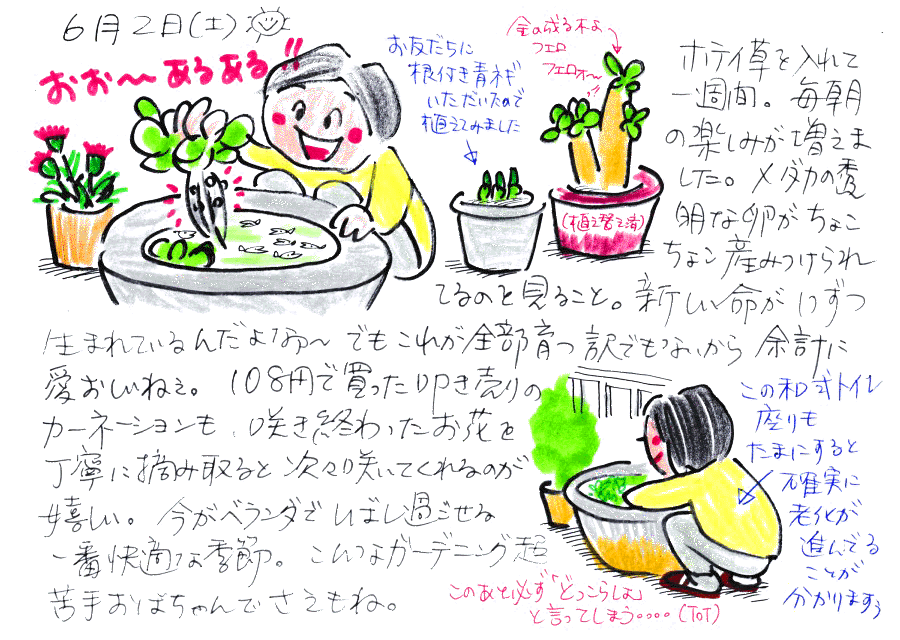 6月2日(土)
おお〜あるある!!
お友だちに
根付き青ネギ
いただいたので
植えてみました
金の成る木よ
フエロ
フエロォ〜
(植え替え済)
ホテイ草を入れて
一週間。毎朝
の楽しみが増えま
した。メダカの透
明な卵がちょこ
ちょこ産みつけられ
てるのを見ること。新しい命が1つずつ
生まれているんだよなぁ〜でもこれが全部育つ訳でもないから余計に
愛おしいねぇ。108円で買った叩き売りの
カーネーションも、咲き終わったお花を
丁寧に摘み取ると次々咲いてくれるのが
嬉しい。今がベランダでしばし過ごせる
一番快適な季節。こんなガーデニング超
苦手おばちゃんでさえもね。
この和式トイレ
座りも
たまにすると
確実に
老化が
進んでる
ことが
分かりますぅ
このあと必ず「どっこらしょ」
と言ってしまう・・・・(ToT)